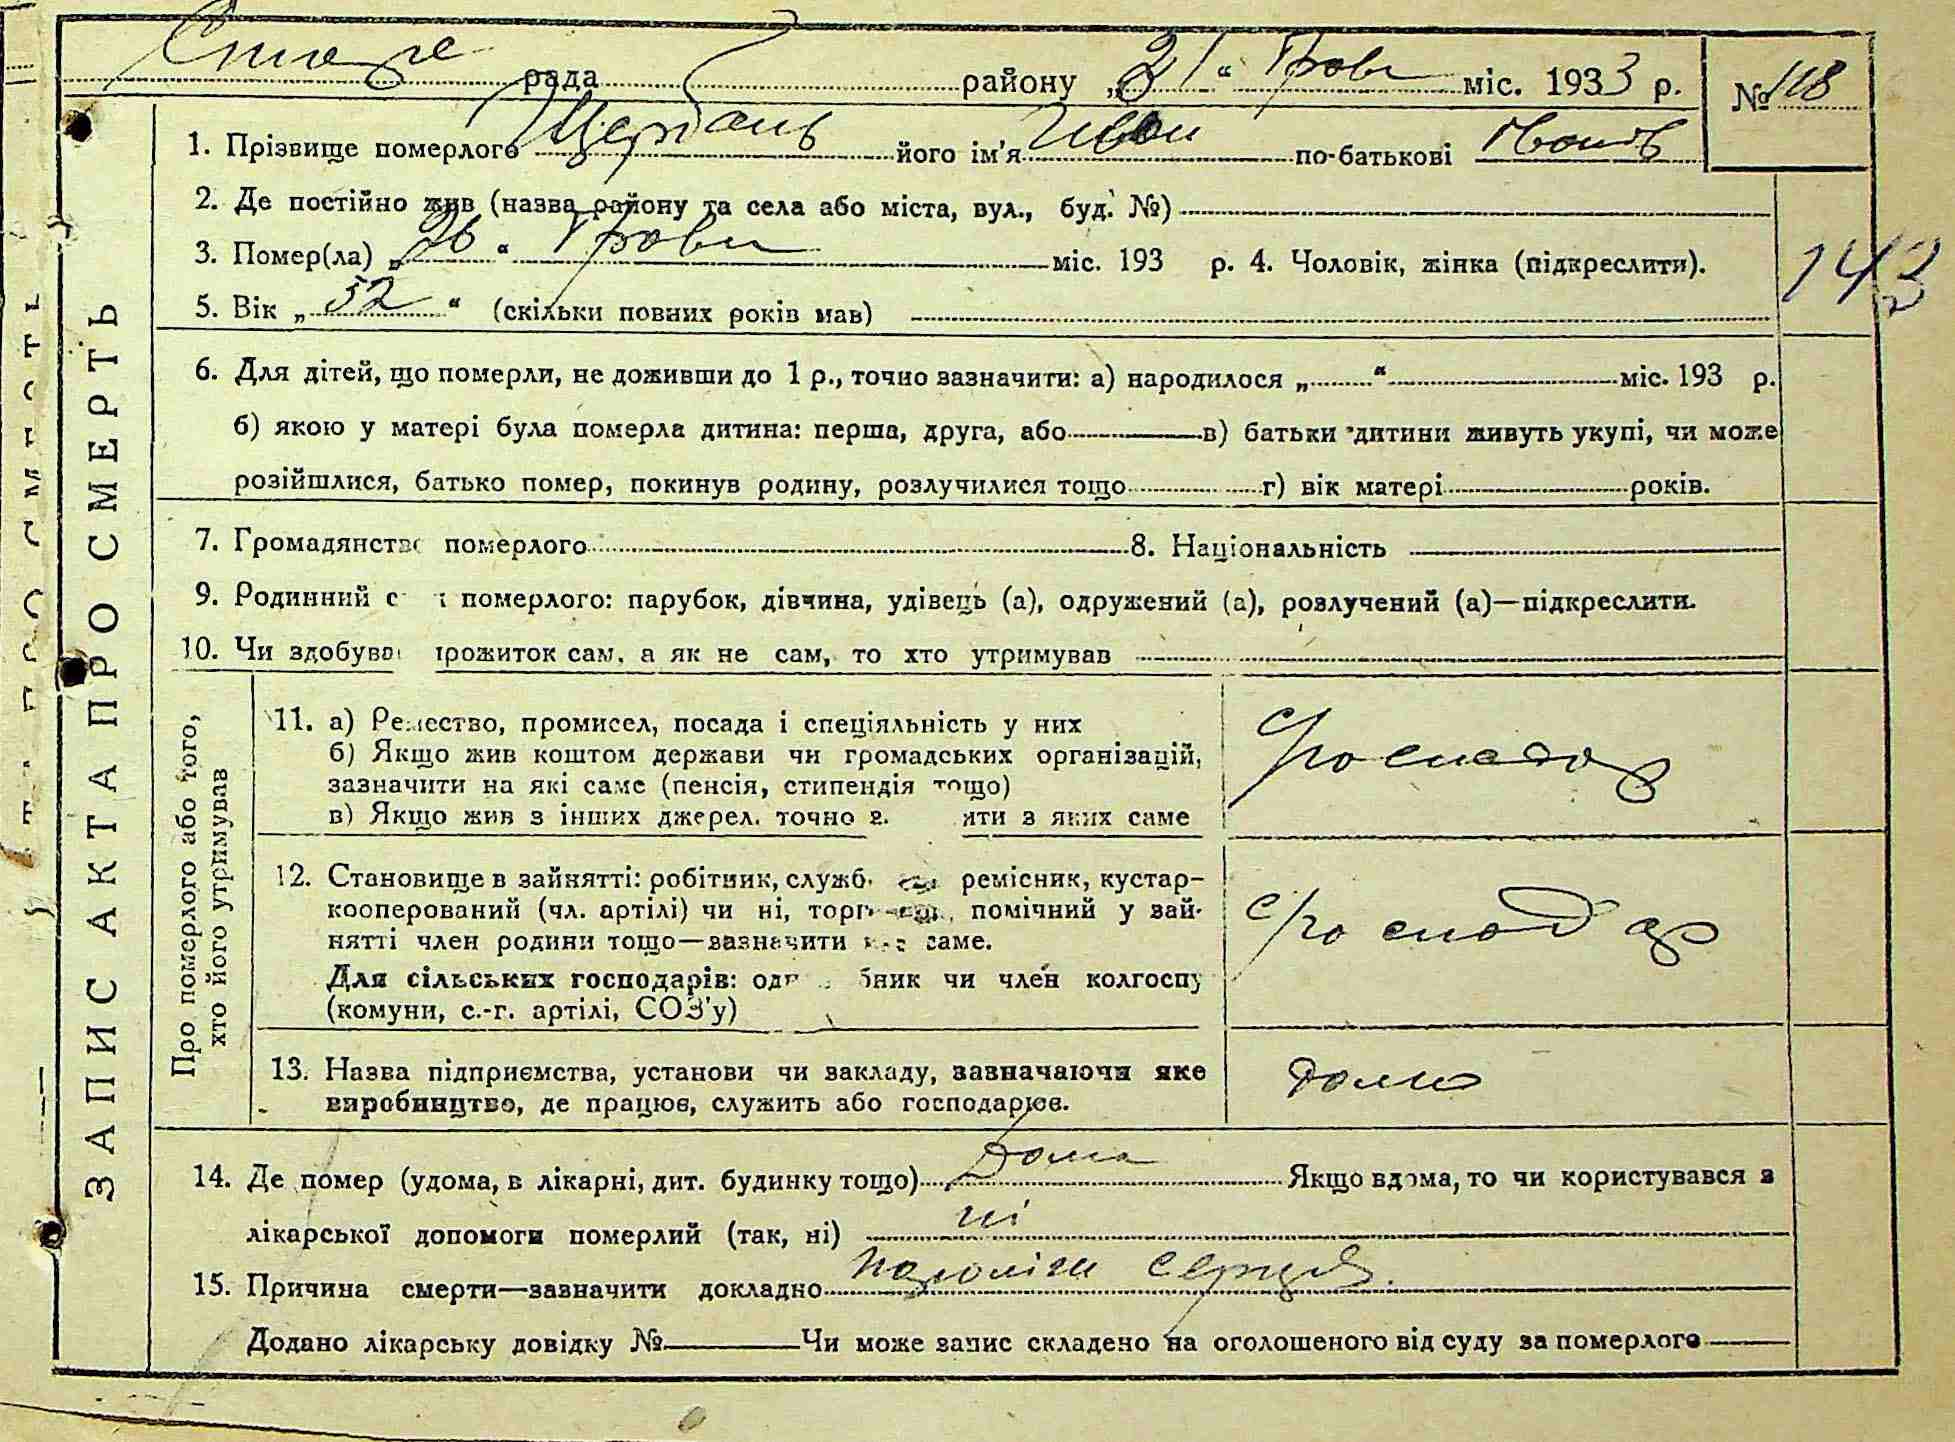 рада району „31“ Трав міс. 1933 р. № 118
1. Прізвище померлого Щербань його ім'я Іван по-батькові Іванов
2. Де постійно жив (назва району та села або міста, вул., буд. №)
3. Помер(ла) „26“ Трав міс. 193 р. 4. Чоловік, жінка (підкреслити).
143
5. Вік „52“ (скільки повних років мав)
6. Для дітей, що померли, не доживши до 1 р., точно зазначити: а) народилося „ “ міс. 193 р.
б) якою у матері була померла дитина: перша, друга, або в) батьки дитини живуть укупі, чи може
розійшлися, батько помер, покинув родину, розлучилися тощо г) вік матері років.
7. Громадянство померлого 8. Національність
9. Родинний с померлого: парубок, дівчина, удівець (а), одружений (а), розлучений (а)—підкреслити.
10. Чи здобував прожиток сам, а як не сам, то хто утримував
ЗАПИС АКТА ПРО СМЕРТЬ
Про померлого або того,
хто його утримував
11. а) Ремество, промисел, посада і спеціяльність у них
б) Якщо жив коштом держави чи громадських організацій,
зазначити на які саме (пенсія, стипендія тощо)
в) Якщо жив з інших джерел, точно з яких саме
господар
12. Становище в зайнятті: робітник, служб. ремісник, кустар-
кооперований (чл. артілі) чи ні, торг помічний у зай-
нятті член родини тощо—зазначити саме.
Для сільських господарів: од чи член колгоспу
(комуни, с.-г. артілі, СОЗ'у)
господар
13. Назва підприємства, установи чи закладу, зазначаючи яке
виробництво, де працює, служить або господарює.
дома
14. Де помер (удома, в лікарні, дит. будинку тощо) Дома Якщо вдома, то чи користувався з
лікарської допомоги померлий (так, ні) ні
15. Причина смерти—зазначити докладно сердця.
Додано лікарську довідку № Чи може запис складено на оголошеного від суду за померлого